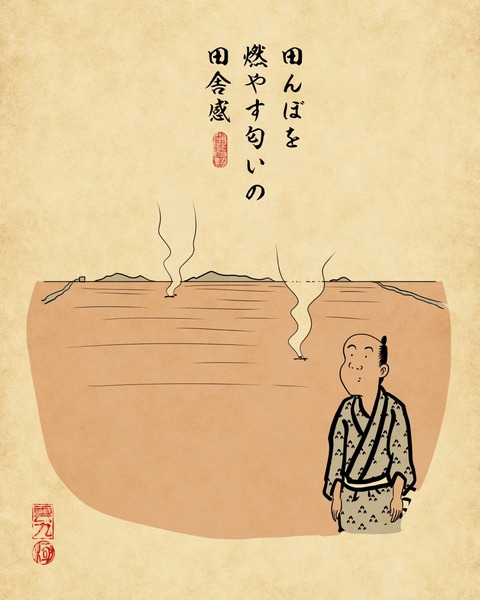 田んぼを
燃やす匂いの
田舎感